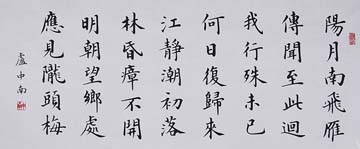 陽月南飛雁
傳聞至此迴
我行殊未已
何日復歸來
江靜潮初落
林昏瘴不開
明朝望鄉處
應見隴頭梅
盧中南